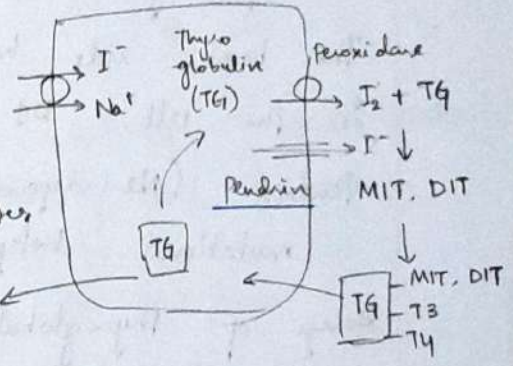 I⁻
Na⁺
Thyro
globulin
(TG)
peroxidase
I₂ + TG
I⁻
Pendrin
MIT, DIT
TG
TG
MIT, DIT
T3
T4